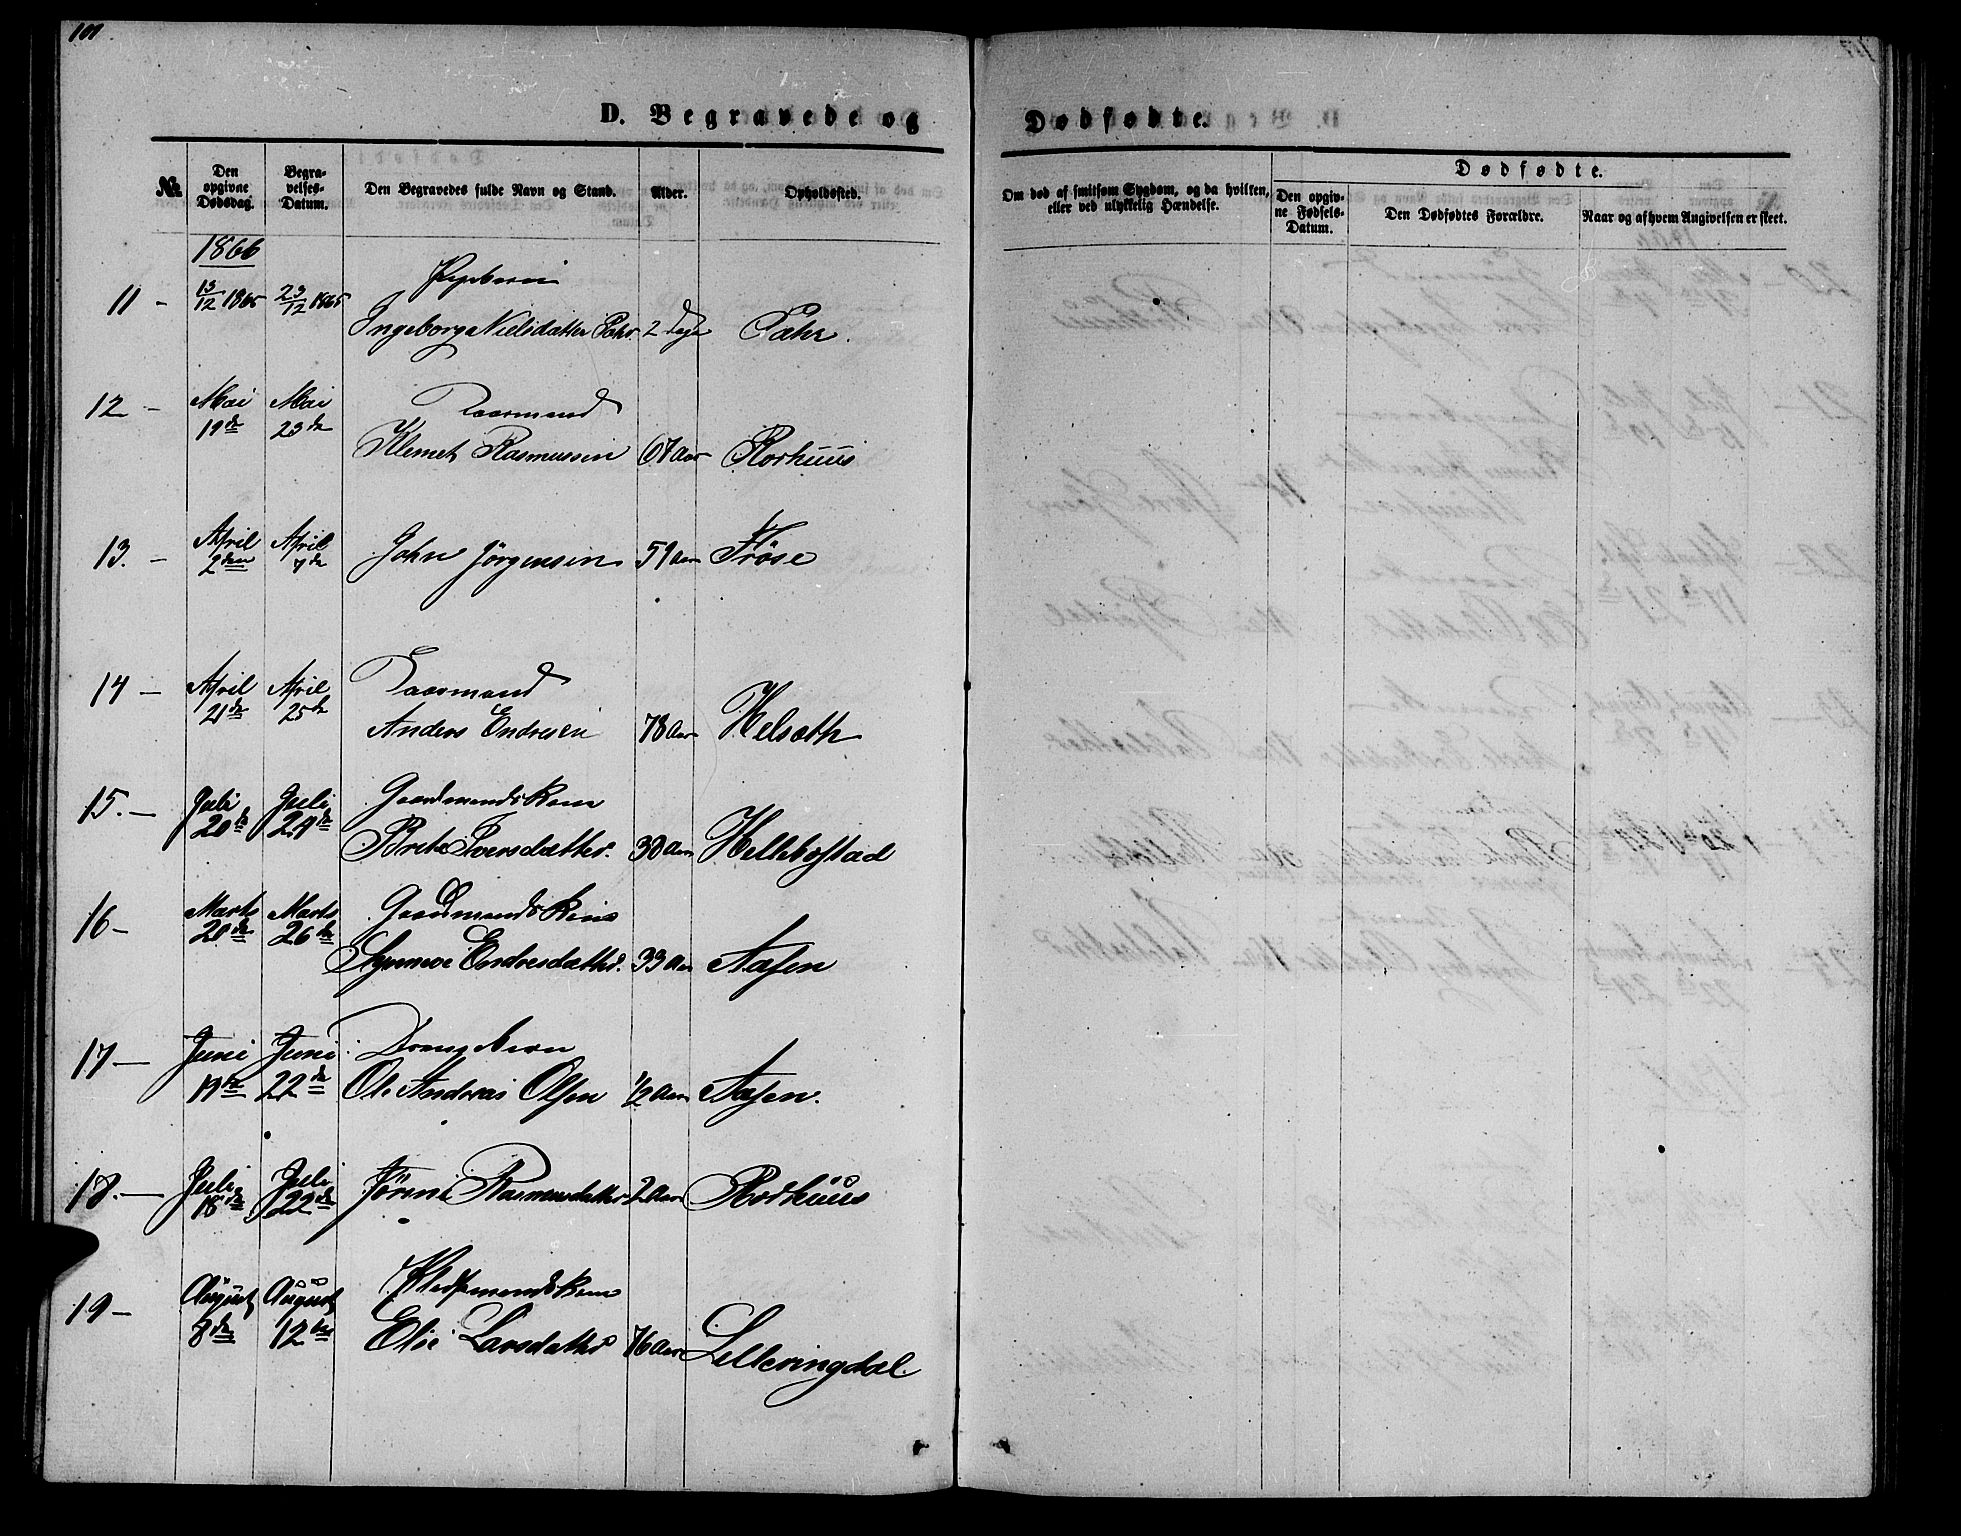 101
D. Begravede og Dødfødte.
No.
Den opgivne Dødsdag.
Begravelses-Datum.
Den Begravedes fulde Navn og Stand.
Alder.
Opholdssted.
Om død af smitsom Sygdom, og da hvilken, eller ved ulykkelig Hændelse.
Dødfødte.
Den opgivne Fødsels-Datum.
Den Dødfødtes Forældre.
Naar og af hvem Angivelsen er skeet.
1866
11 - 13/12 1865 23/12 1865
Ingeborg Nielsdatter 2 Dage
12 - Mai Mai Kaarmand
19de 23de Klemet Rasmussen 67 Aar Rorhuus
13. - April April John Jörgensen 51 Aar Fröse
2den 7de
14 - April April Kaarmand
21de 25de Anders Endresen 78 Aar Helsæth
15. - Juli Juli Gaardmandskone
20de 24de Brite Iversdatter. 30 Aar Hellebostad
16 - Marts Marts Gaardmandskone
20de 26de Synneve Endresdatter. 33 Aar Aasen
17 - Juni Juni Drengebarn
19de 22de Ole Andreas Olsen 1/2 Aar Aasen.
18. - Juli Juli Jörine Rasmusdatter 2 Aar Rorhuus
18de 22de
19 - August August
8de 12te Elie Larsdatter 76 Aar Lilleringdal